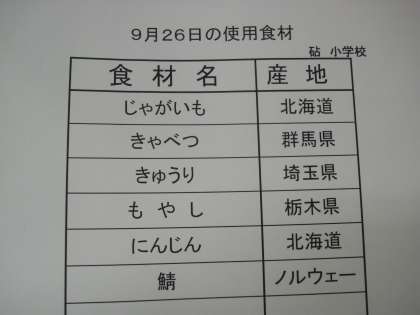 9月26日の使用食材
砧 小学校
食 材 名 産 地
じゃがいも 北海道
きゃべつ 群馬県
きゅうり 埼玉県
もやし 栃木県
にんじん 北海道
鯖 ノルウェー